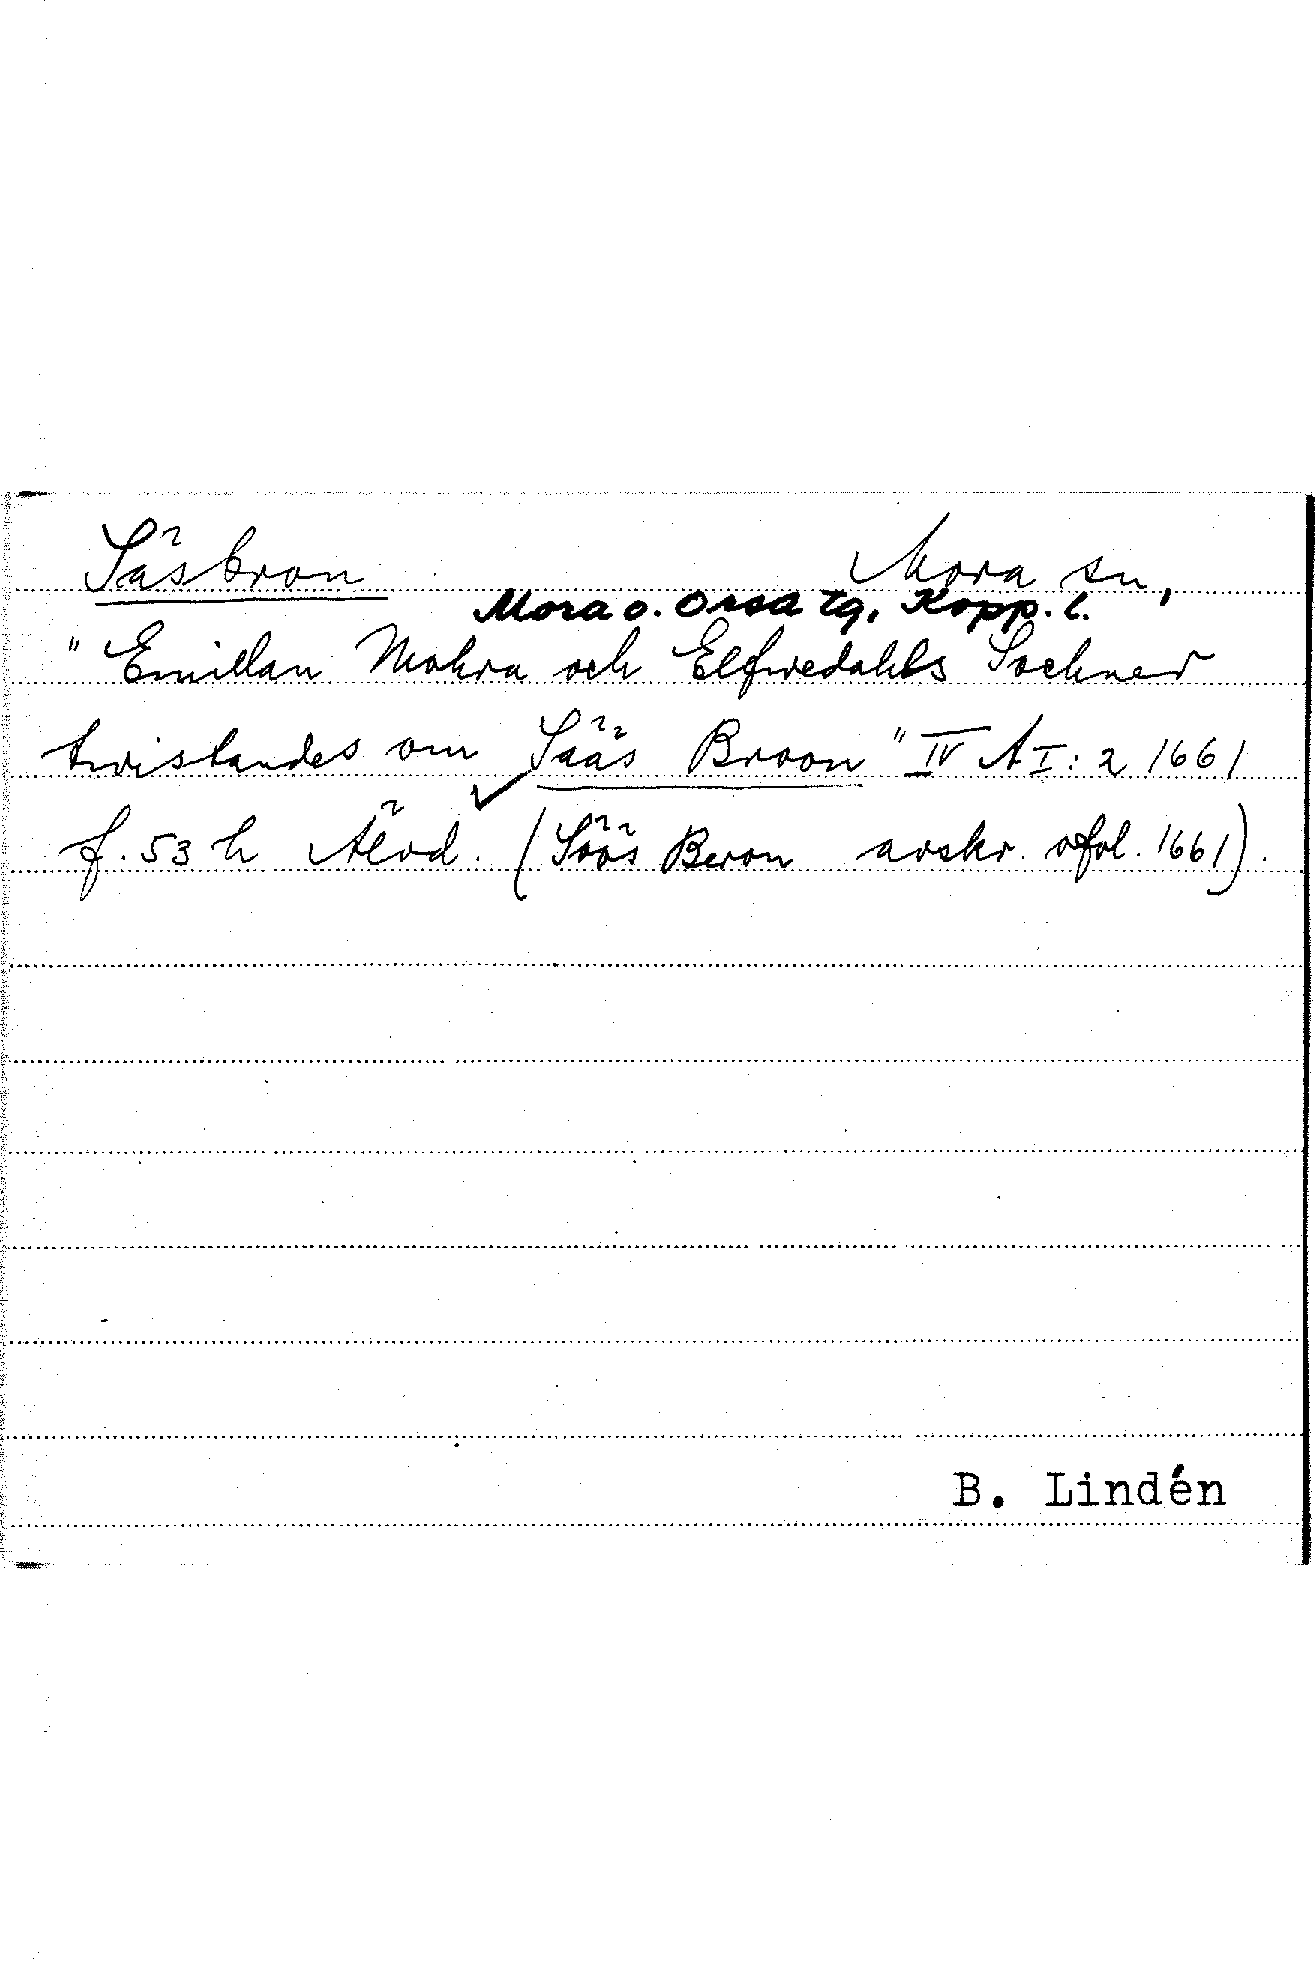 Säsbron Mora sn,
Mora o. Orsa tg, Kopp. l.
"Emillan Mohra och Elfwedahls Sochner
twistandes om Sääs Broon" IV A I: 2 1661
f. 53 h Älvd. (Söös Beron avskr. 1661).
B. Lindén